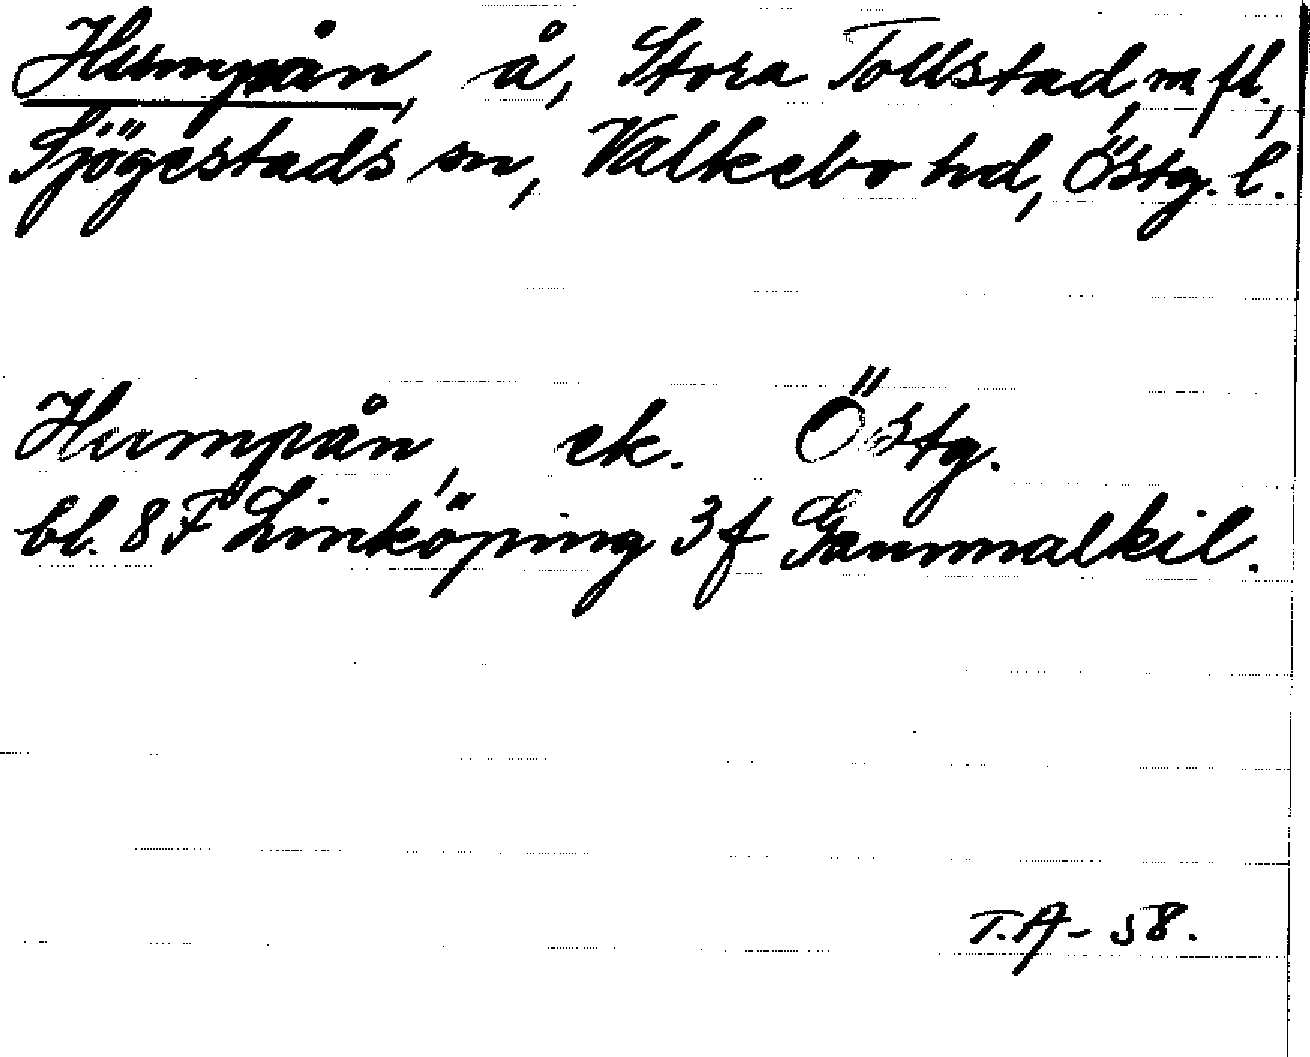 Humpån, å, Stora Tollstad, m fl.,
Sjögestads sn, Valkebo hd, Östg. l.
Humpån, ek. Östg.
bl. 8F Linköping 3f Gammalkil.
T.A- 58.